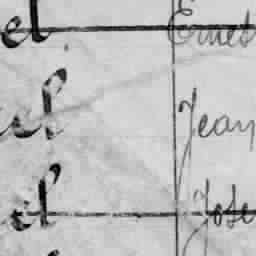 el Ernest
el Jean
el Jose